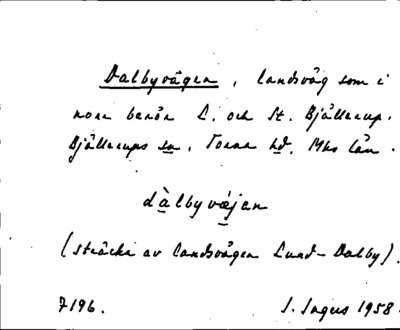 Dalbyvägen, landsväg som i
norr berör L. och St. Bjällerup.
Bjällerups sn, Torna hd, Mhs län.
dàlbyvæjen
(sträcka av landsvägen Lund-Dalby).
7196. S. Ingers 1958.